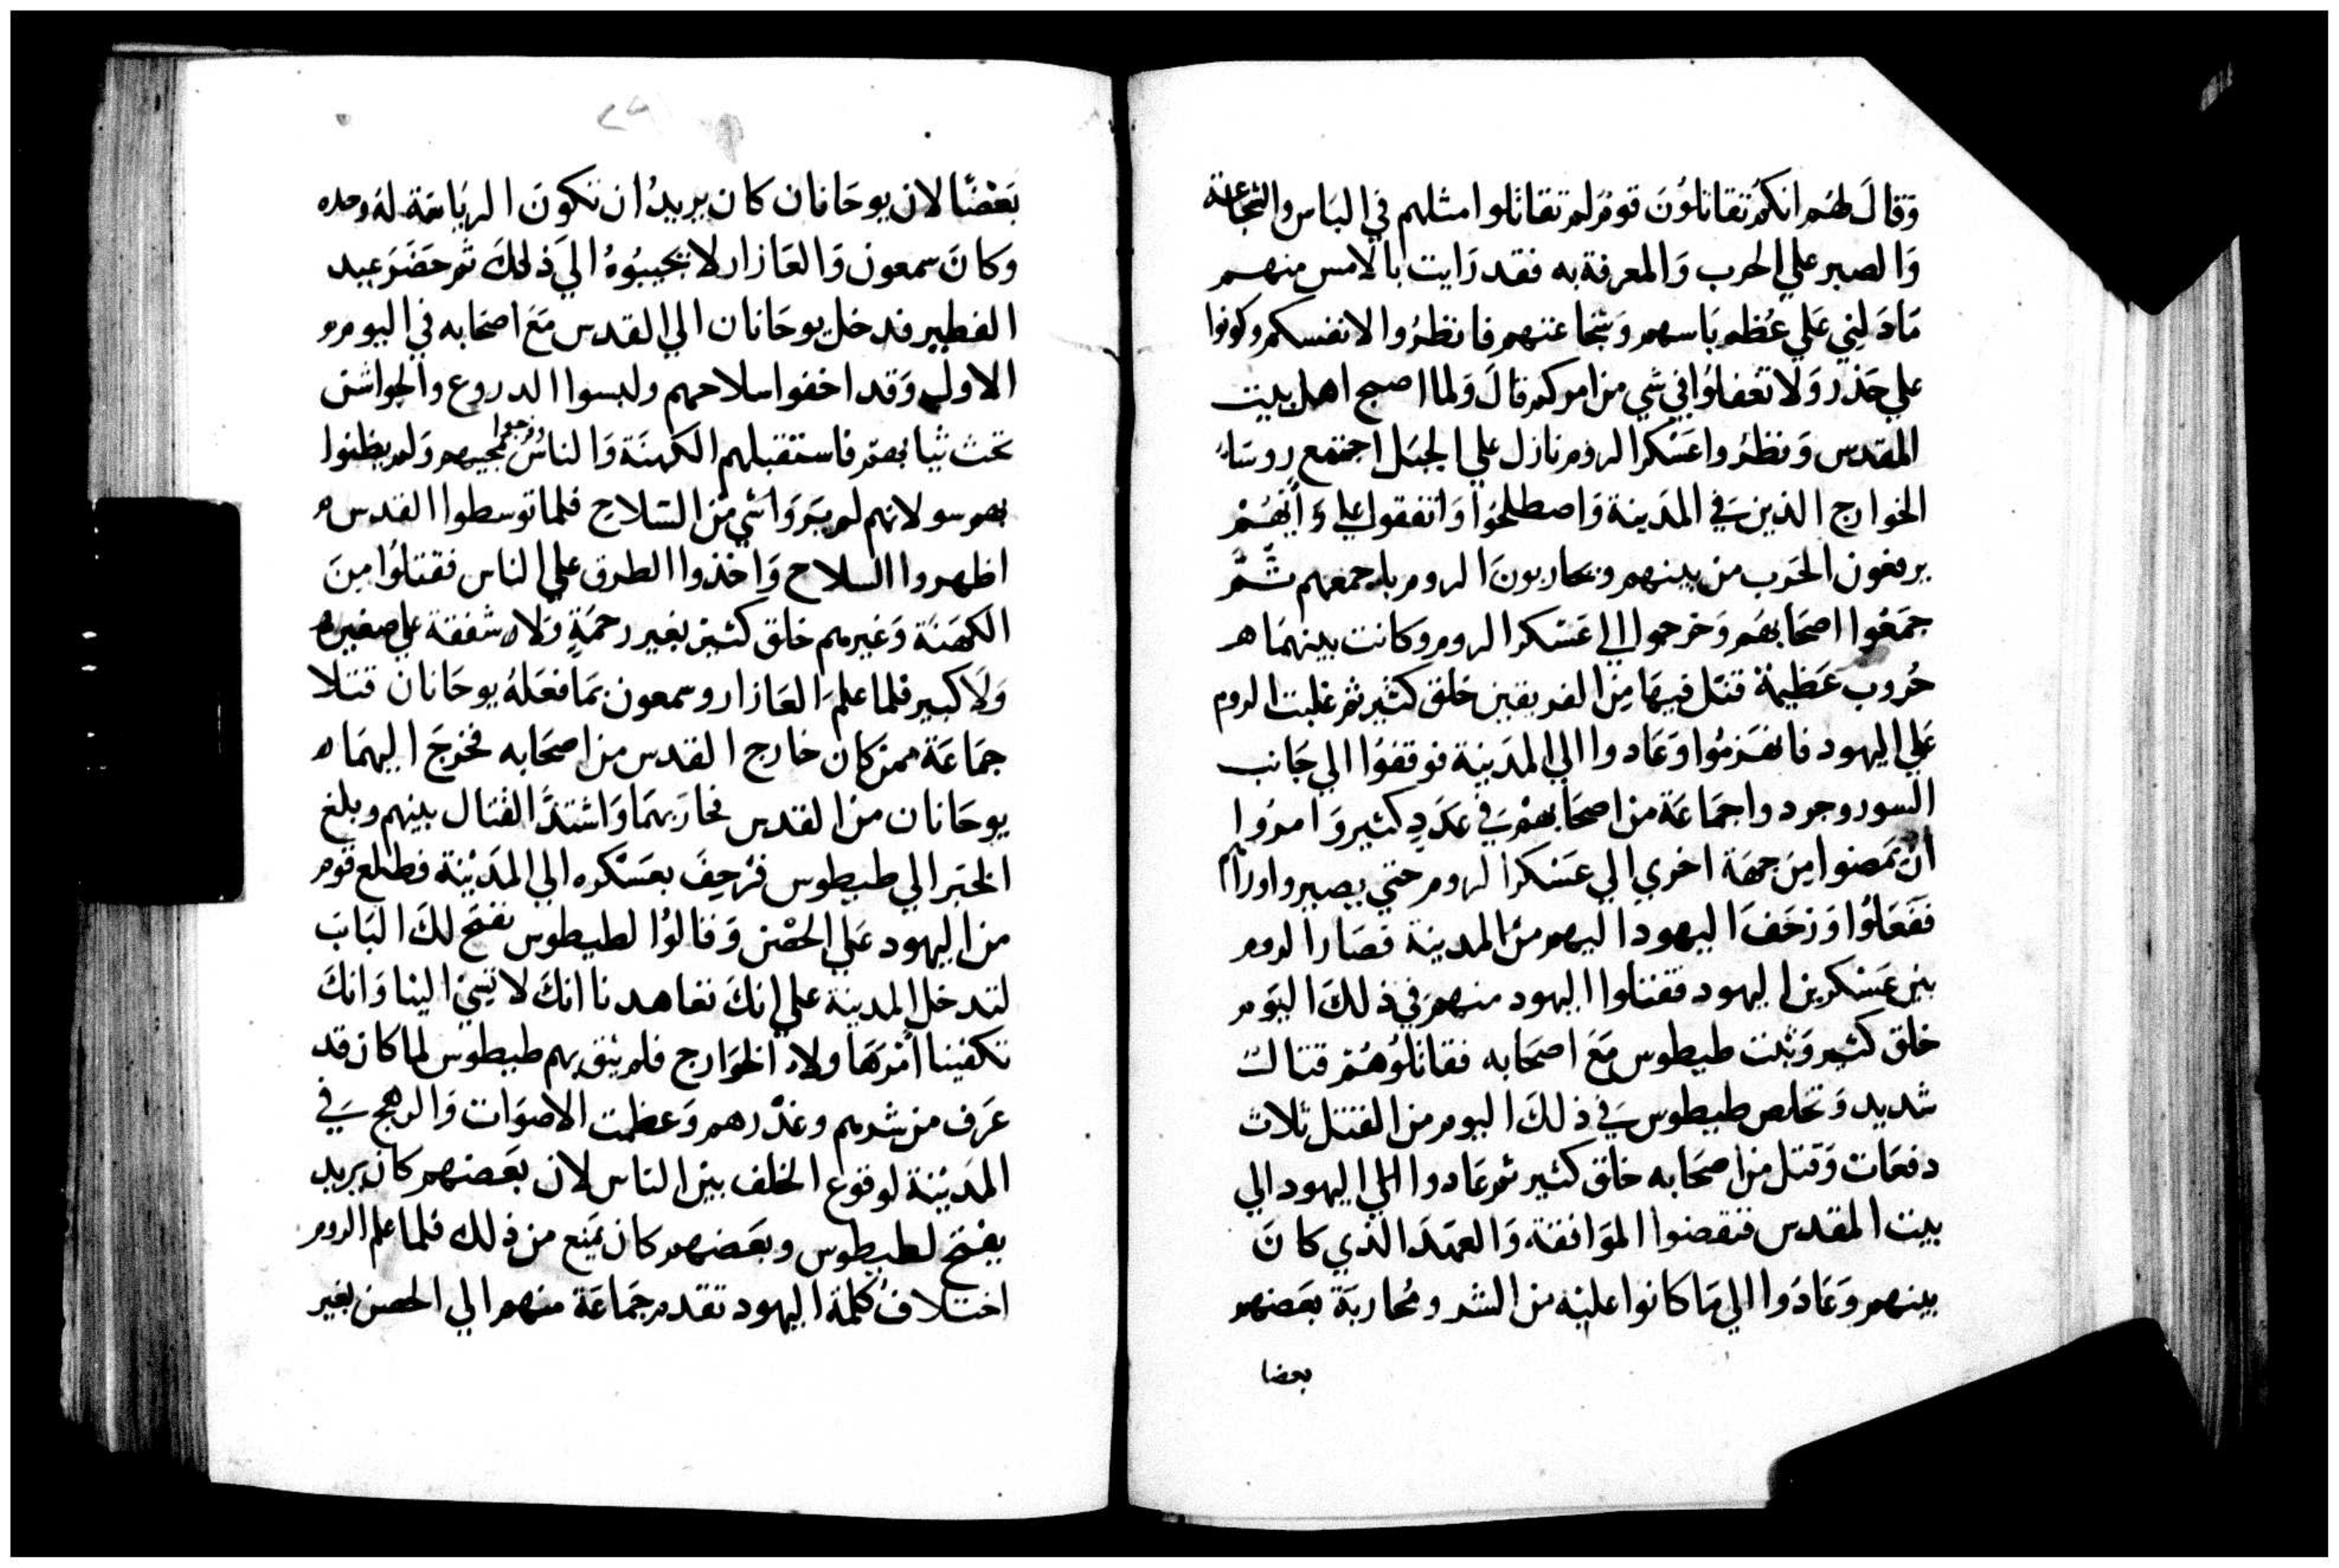 وَقالَ لهُم انكم تقاتلونَ قوم لم تقاتلوا مثلهم في الباس والشجاعة
وَالصبر علي الحرب وَالمعرفة به فقد رَايت بالامس منهم
مَا دَلني عَلي عُظم بَاسهم وَشجاعتهم فانظرُوا لانفسكم وكونوا
علي حذر وَلا تغفلوا في شي من امركم قالَ وَلما اصبح اهل بيت
المقدس وَنظرُوا عَسْكر الروم نازل علي الجبَل اجتمع روسَاء
الخوارج الذين في المدَينة وَاصطلحُوا وَاتفقوا علي انهُمْ
يرفعون الحَرب من بينهم ويحاربونَ الروم باجمعهم ثمَّ
جمَعُوا اصحَابهُم وَخرجوا الي عَسْكر الروم وكانت بينهمَا
حُروب عَظيمة قتل فيهَا مِن الفريقين خلق كثير ثم غلبت الروم
عَلي اليهود فانهَزمُوا وَعَادوا الي المدَينة فوقفوا الي جَانب
السور وجردوا جمَاعَة من اصحَابهم في عَدَدٍ كثير وَامرُوا
ان يمَضوا مِن جهَة اخري الي عَسْكر الروم حتي يصيروا وراهم
ففعَلوُا وَزحَفَ اليهود اليهم من المدينة فصَار الروم
بين عَسْكرين اليهود فقتلوا اليهود منهم في ذلكَ اليَوم
خلق كثير وَثبت طيطوس مَعَ اصحَابه فقاتلوُهُم قتالت
شديد وَتخلص طيطوس في ذلكَ اليوم من القتل ثلاث
دفعَات وَقتل من اصحَابه خلق كثير ثم عَادوا اليهود الي
بيت المقدس فنقضوا الموَافقة وَالعهدَ الذي كانَ
بينهم وَعَادُوا الي مَا كانوا عليْه من الشر ومُحاربَة بعَضهم
بعضا
بَعْضًا لان يوحَانان كان يريدُ ان تكونَ الريَاسَة لهُ وحده
وَكانَ سمعون وَالعَازار لا يجيبُوهُ الي ذلكَ ثم حَضَرَ عيد
الفطير فدخل يوحَانان الي القدس مَعَ اصحَابه في اليوم
الاول وَقد اخفوا سلاحهم ولبسوا الدروع والجواشن
تحت ثيابهم فاستقبلهم الكهنَة وَالناس وفرحوا بمجيهم وَلم يظنوا
بهم سو لانهم لم يَروَا شي من السَلاح فلما توسطوا القدس
اظهروا السلاح وَاخذوا الطرق علي الناس فقتلوُا مِنَ
الكهَنَة وَغيرهم خلق كثير بغير رحمَةٍ وَلا شفقة علي صغير
وَلَا كبير فلما علمَ العَازار وسمعون بمَا فعَلهُ يوحَانان قتلا
جمَاعَة ممن كان خارج القدس من اصحَابه فخرجَ اليهمَا
يوحَانان من القدس فحارَبهمَا وَاشتدَّ القتال بينهم وبلغ
الخبَر الي طيطوس فزحفَ بعَسْكره الي المدَيْنة فطلع قوم
من اليهود عَلي الحصْن وَقالوُا لطيطوس نفتح لكَ البَابَ
لتدخل المدينة علي انكَ تعاهدنا انكَ لا تسئ الينا وَانكَ
تكفينا امْر هَاولاء الخوَارج فلم يثق بهم طيطوس لما كان قد
عَرف من شرهم وغدْرهم وَعظمت الاصوَات وَالرهج في
المدَيْنة لوقوع الخلف بين الناس لان بعَضهم كان يريد
يفتح لطيطوس وبعَضهم كان يمَنع من ذلك فلما علم الروم
اختلافُ كلمة اليهود تقدم جمَاعَة منهم الي الحصن بغير